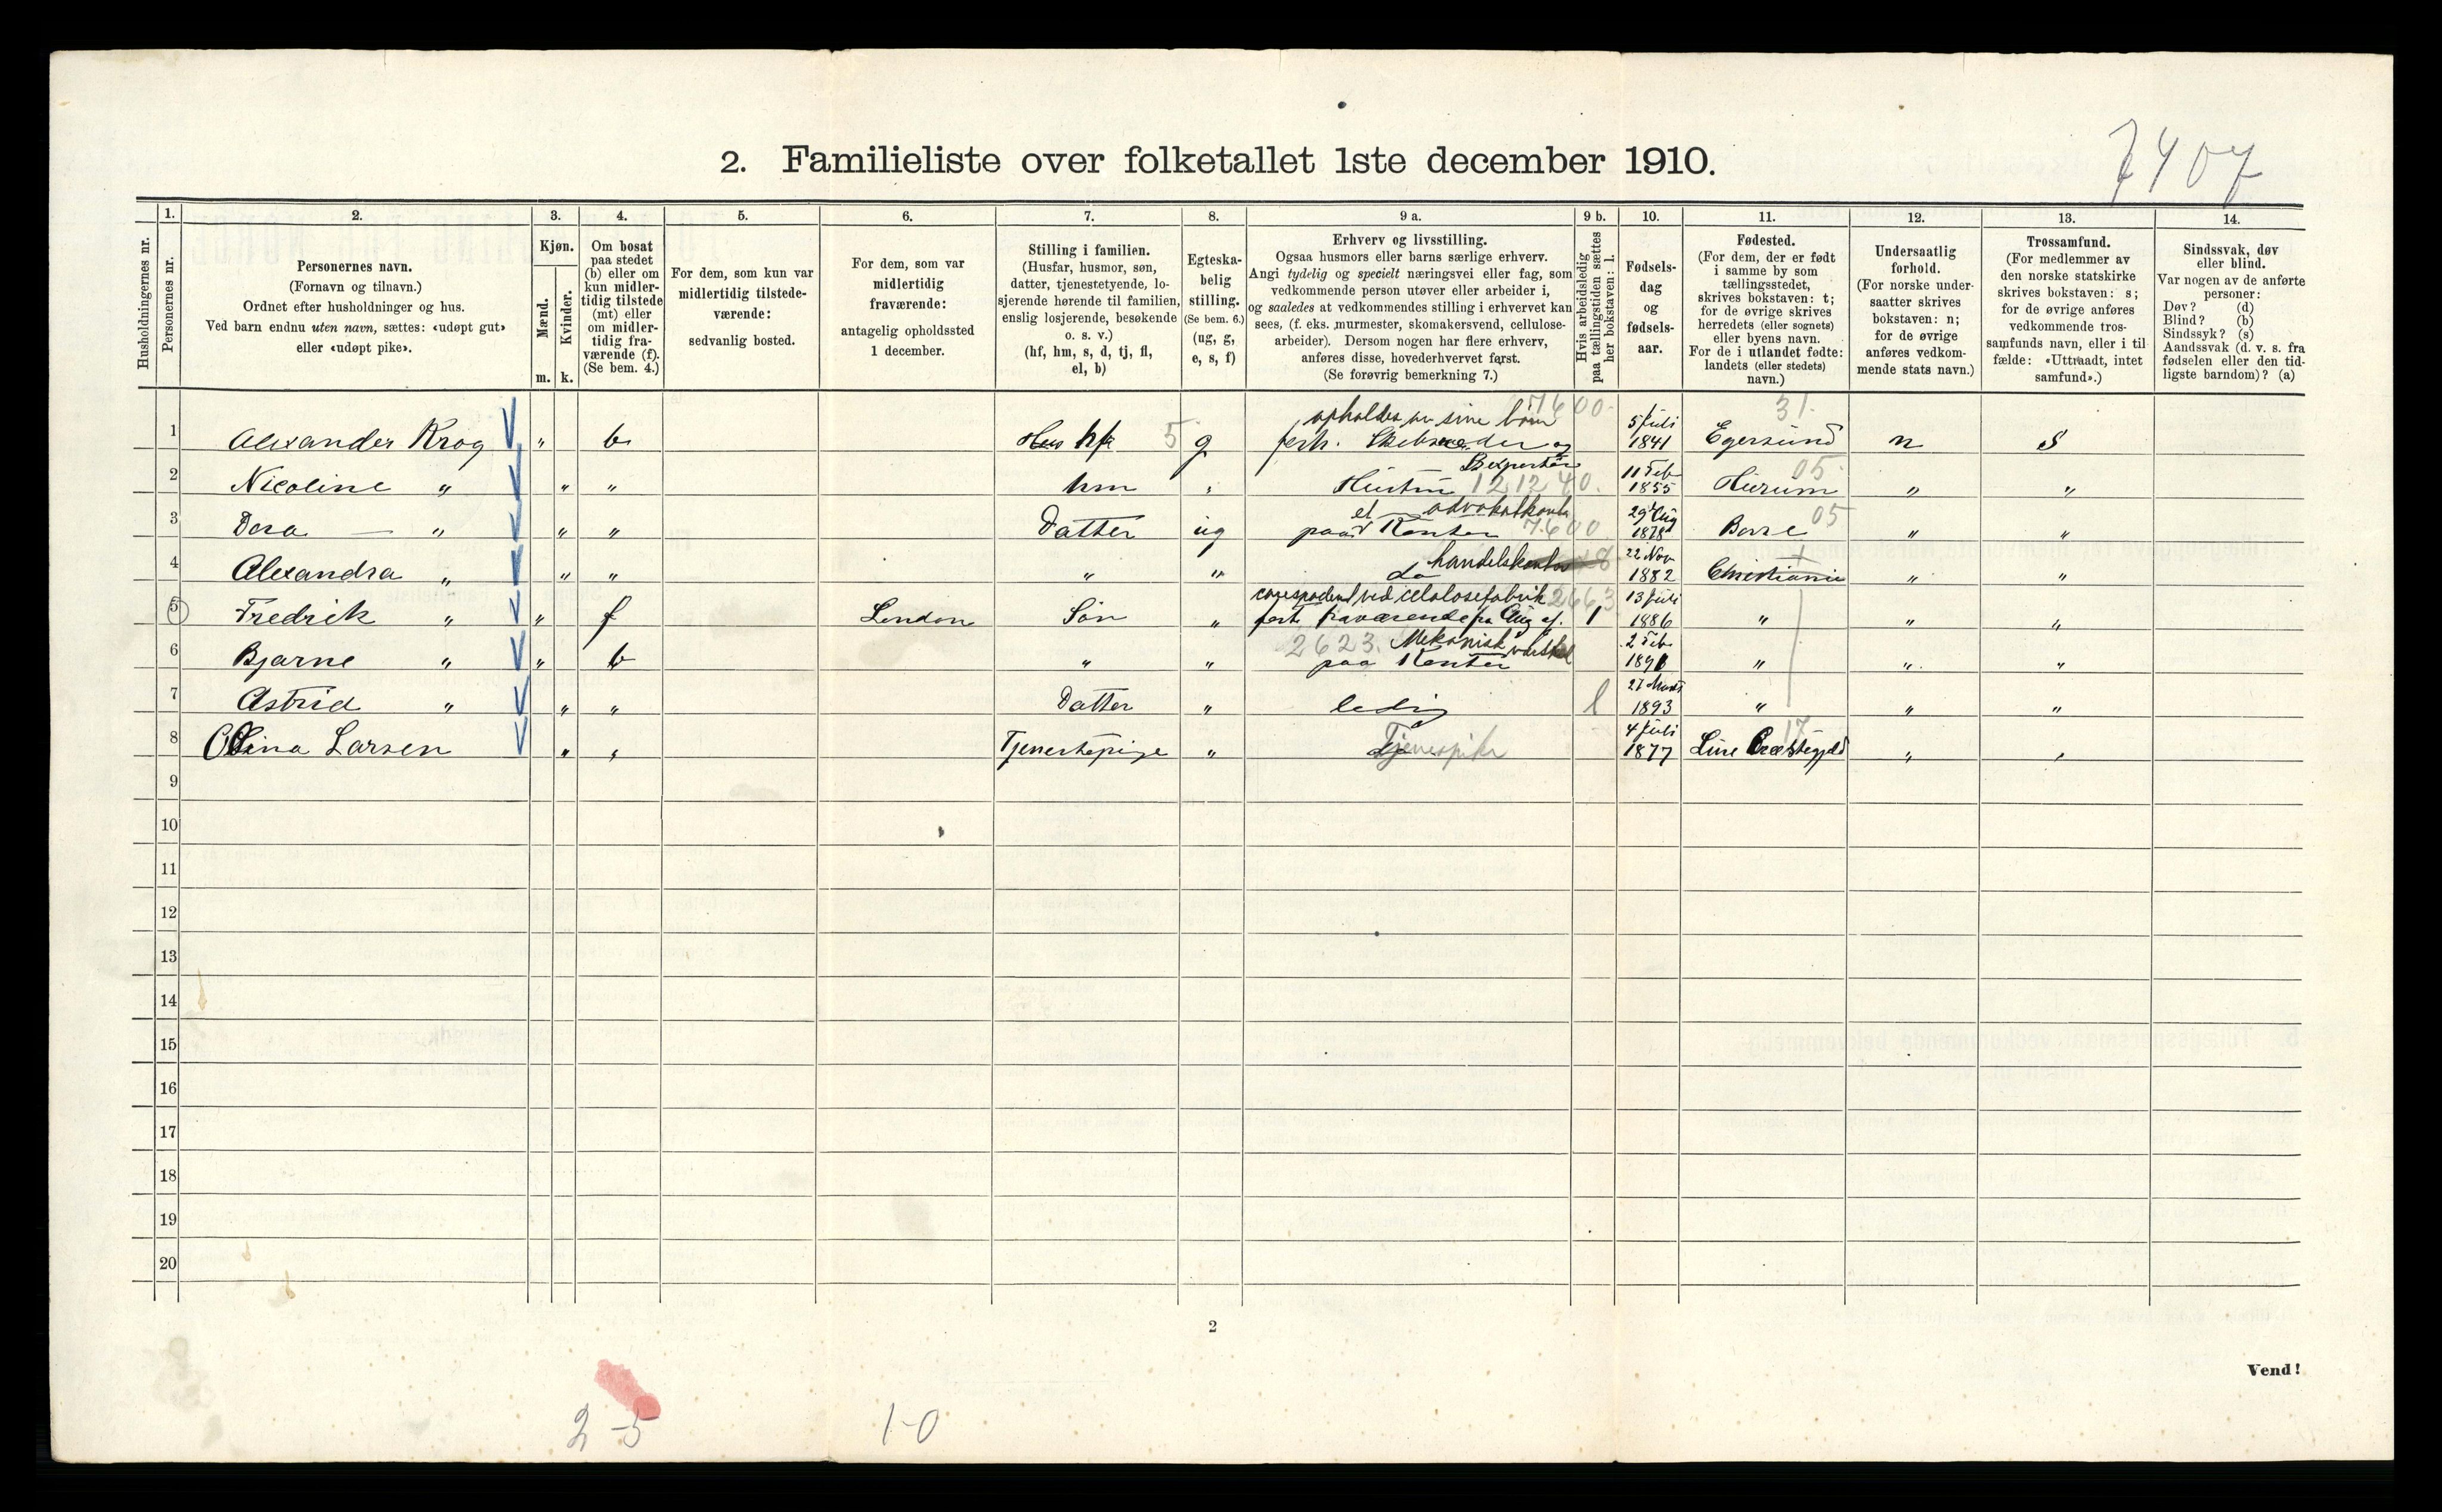 7407
2. Familieliste over folketallet 1ste december 1910.
Husholdningernes nr.
1. Personernes nr.
2. Personernes navn.
(Fornavn og tilnavn.)
Ordnet efter husholdninger og hus.
Ved barn endnu uten navn, sættes: «udøpt gut»
eller «udøpt pike».
3. Kjøn.
Mænd. m.
Kvinder. k.
4. Om bosat
paa stedet
(b) eller om
kun midler-
tidig tilstede
(mt) eller
om midler-
tidig fra-
værende (f).
(Se bem. 4.)
5. For dem, som kun var
midlertidig tilstede-
værende:
sedvanlig bosted.
6. For dem, som var
midlertidig
fraværende:
antagelig opholdssted
1 december.
7. Stilling i familien.
(Husfar, husmor, søn,
datter, tjenestetyende, lo-
sjerende hørende til familien,
enslig losjerende, besøkende
o. s. v.)
(hf, hm, s, d, tj, fl,
el, b)
8. Egteska-
belig
stilling.
(Se bem. 6.)
(ug, g,
e, s, f)
9 a. Erhverv og livsstilling.
Ogsaa husmors eller barns særlige erhverv.
Angi tydelig og specielt næringsvei eller fag, som
vedkommende person utøver eller arbeider i,
og saaledes at vedkommendes stilling i erhvervet kan
sees, (f. eks. murmester, skomakersvend, cellulose-
arbeider). Dersom nogen har flere erhverv,
anføres disse, hovederhvervet først.
(Se forøvrig bemerkning 7.)
9 b. Hvis arbeidsledig
paa tællingstiden sættes
her bokstaven: l.
10. Fødsels-
dag
og
fødsels-
aar.
11. Fødested.
(For dem, der er født
i samme by som
tællingsstedet,
skrives bokstaven: t;
for de øvrige skrives
herredets (eller sognets)
eller byens navn.
For de i utlandet fødte:
landets (eller stedets)
navn.)
12. Undersaatlig
forhold.
(For norske under-
saatter skrives
bokstaven: n;
for de øvrige
anføres vedkom-
mende stats navn.)
13. Trossamfund.
(For medlemmer av
den norske statskirke
skrives bokstaven: s;
for de øvrige anføres
vedkommende tros-
samfunds navn, eller i til-
fælde: «Uttraadt, intet
samfund».)
14. Sindssvak, døv
eller blind.
Var nogen av de anførte
personer:
Døv? (d)
Blind? (b)
Sindssyk? (s)
Aandssvak (d. v. s. fra
fødselen eller den tid-
ligste barndom)? (a)
1 Alexander Krog " b hf 5 g opholdes av sine børn 7600 forh. og 5 Juli 1841 Egersund 31 n S
2 Nicoline " " " hm " Hustru 121240. 11 Feb 1855 Hurum 05 " "
3 Dora — " " " Datter ug paa et advokatkontor Kontor 7600 29 Aug 1878 Borre 05 " "
4 Alexandra " " " " " do handelskontor 22 Nov 1882 Christiania " "
5 Fredrik " " f London Søn " ved celulosefabrik 2663 fort. fraværende fra Aug af. 1 13 Juli 1886 " " "
6 Bjarne " " b " " 2623. Mekanisk paa Kontor 2 Feb " " "
7 Astrid " " " Datter " ledig l 27 Marts 1893 " " "
8 Olina Larsen " " Tjenestepige " Tjenespike 4 Juli 1877 17 " "
9
10
11
12
13
14
15
16
17
18
19
20
2
Vend!
2-5 1-0